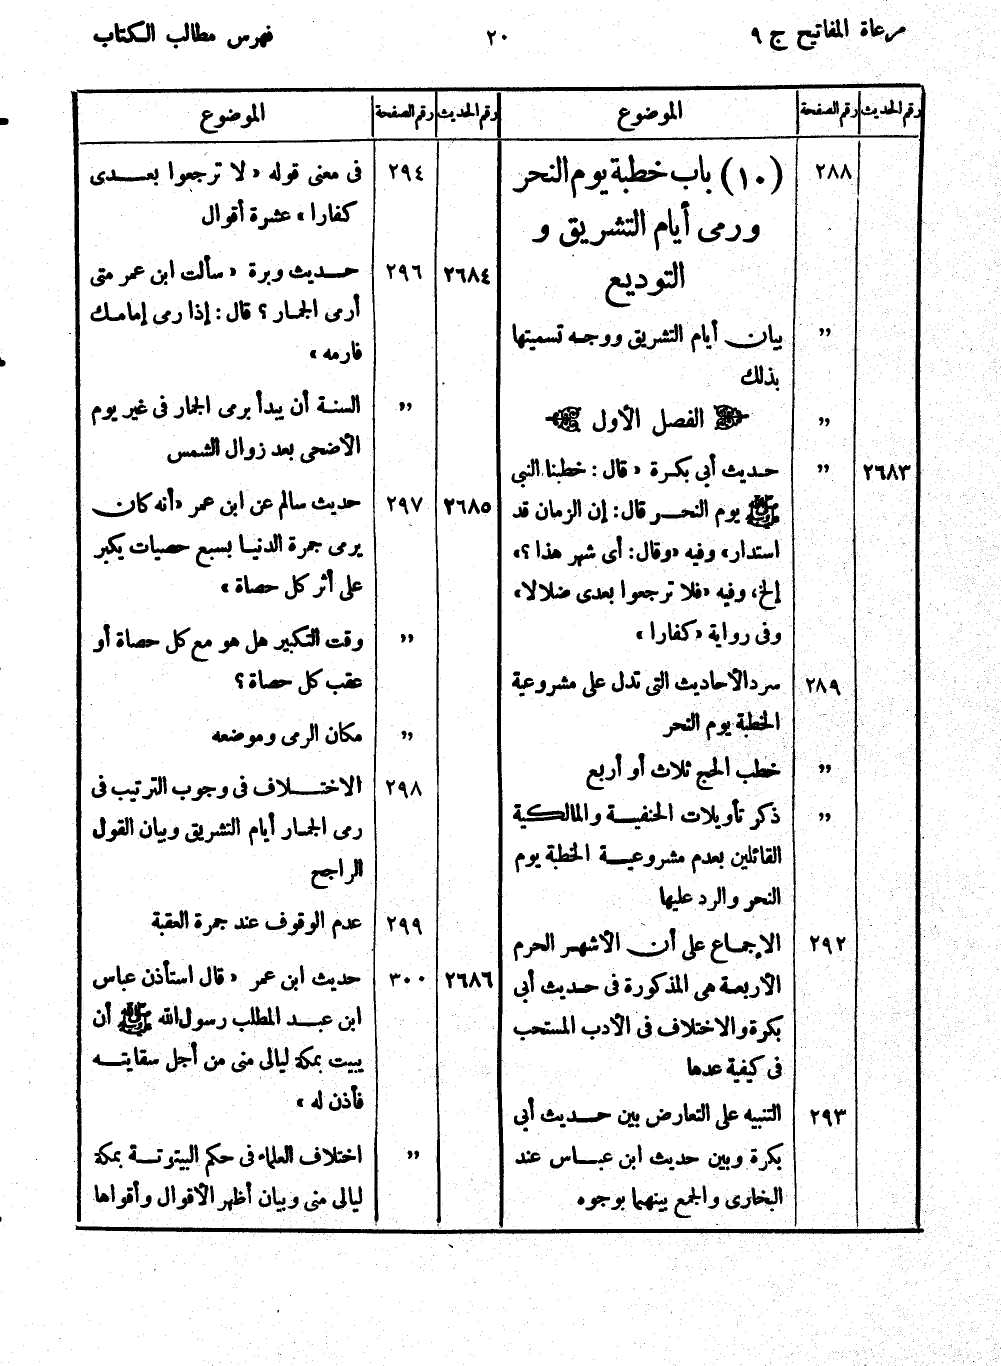 مرعاة المفاتيح ج ٩
٢٠
فهرس مطالب الكتاب
رقم الحديث رقم الصفحة الموضوع
٢٨٨ (١٠) باب خطبة يوم النحر
ورمى أيام التشريق و
التوديع
,, بيان أيام التشريق ووجه تسميتها
بذلك
,, الفصل الأول
٢٦٨٣ ,, حديث أبى بكرة « قال : خطبنا النبى
ﷺ يوم النحر قال: إن الزمان قد
استدار» وفيه «وقال: أى شهر هذا ؟»
إلخ، وفيه «فلا ترجعوا بعدى ضلالا»
وفى رواية «كفارا »
٢٨٩ سرد الأحاديث التى تدل على مشروعية
الخطبة يوم النحر
,, خطب الحج ثلاث أو أربع
,, ذكر تأويلات الحنفية والمالكية
القائلين بعدم مشروعية الخطبة يوم
النحر والرد عليها
٢٩٢ الإجماع على أن الأشهر الحرم
الأربعة هى المذكورة فى حديث أبى
بكرة والاختلاف فى الأدب المستحب
فى كيفية عدها
٢٩٣ التنبيه على التعارض بين حديث أبى
بكرة وبين حديث ابن عباس عند
البخارى والجمع بينهما بوجوه
رقم الحديث رقم الصفحة الموضوع
٢٩٤ فى معنى قوله « لا ترجعوا بعدى
كفارا » عشرة أقوال
٢٦٨٤ ٢٩٦ حديث وبرة « سألت ابن عمر متى
أرمى الجمار ؟ قال : إذا رمى إمامك
فارمه »
,, السنة أن يبدأ برمى الجمار فى غير يوم
الأضحى بعد زوال الشمس
٢٦٨٥ ٢٩٧ حديث سالم عن ابن عمر «أنه كان
يرمى جمرة الدنيا بسبع حصيات يكبر
على أثر كل حصاة »
,, وقت التكبير هل هو مع كل حصاة أو
عقب كل حصاة ؟
,, مكان الرمى وموضعه
٢٩٨ الاختلاف فى وجوب الترتيب فى
رمى الجمار أيام التشريق وبيان القول
الراجح
٢٩٩ عدم الوقوف عند جمرة العقبة
٢٦٨٦ ٣٠٠ حديث ابن عمر « قال استأذن عباس
ابن عبد المطلب رسول الله ﷺ أن
يبيت بمكة ليالى منى من أجل سقايته
فأذن له »
,, اختلاف العلماء فى حكم البيتوتة بمكة
ليالى منى وبيان أظهر الأقوال وأقواها